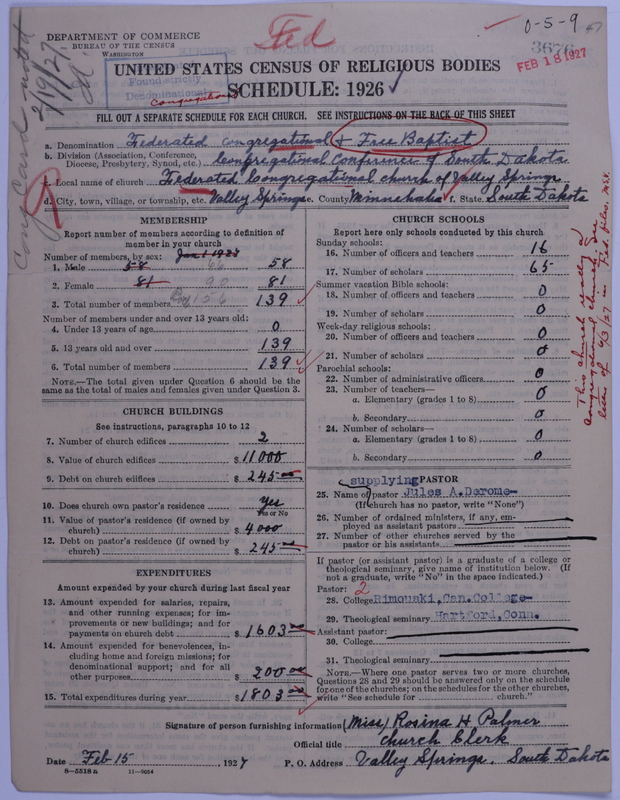 Fed
0-5-9
3676
FEB 18 1927
DEPARTMENT OF COMMERCE
BUREAU OF THE CENSUS
WASHINGTON
UNITED STATES CENSUS OF RELIGIOUS BODIES
Found strictly
Denominational
Congregational
SCHEDULE: 1926
2/19/27
FILL OUT A SEPARATE SCHEDULE FOR EACH CHURCH. SEE INSTRUCTIONS ON THE BACK OF THIS SHEET
a. Denomination Federated Congregational & Free Baptist
b. Division (Association, Conference, Diocese, Presbytery, Synod, etc.) Congregational Conference of South Dakota
c. Local name of church Federated Congregational church of Valley Springs
d. City, town, village, or township, etc. Valley Springs e. County Minnehaha f. State South Dakota
MEMBERSHIP
Report number of members according to definition of member in your church
Number of members, by sex: Jan 1 1927
1. Male 58 58
2. Female 81 90 81
3. Total number of members 156 139
Number of members under and over 13 years old:
4. Under 13 years of age 0
5. 13 years old and over 139
6. Total number of members 139
NOTE.—The total given under Question 6 should be the same as the total of males and females given under Question 3.
CHURCH BUILDINGS
See instructions, paragraphs 10 to 12
7. Number of church edifices 2
8. Value of church edifices $ 11000
9. Debt on church edifices $ 245 00
10. Does church own pastor's residence yes
Yes or No
11. Value of pastor's residence (if owned by church) $ 4000
12. Debt on pastor's residence (if owned by church) $ 245
EXPENDITURES
Amount expended by your church during last fiscal year
13. Amount expended for salaries, repairs, and other running expenses; for improvements or new buildings; and for payments on church debt $ 1603
14. Amount expended for benevolences, including home and foreign missions; for denominational support; and for all other purposes $ 200 00
15. Total expenditures during year $ 1803 00
CHURCH SCHOOLS
Report here only schools conducted by this church
Sunday schools:
16. Number of officers and teachers 16
17. Number of scholars 65
Summer vacation Bible schools:
18. Number of officers and teachers 0
19. Number of scholars 0
Week-day religious schools:
20. Number of officers and teachers 0
21. Number of scholars 0
Parochial schools:
22. Number of administrative officers 0
23. Number of teachers—
a. Elementary (grades 1 to 8) 0
b. Secondary 0
24. Number of scholars—
a. Elementary (grades 1 to 8) 0
b. Secondary 0
supplying PASTOR
25. Name of pastor Jules A. Derome
(If church has no pastor, write "None")
26. Number of ordained ministers, if any, employed as assistant pastors
27. Number of other churches served by the pastor or his assistants
If pastor (or assistant pastor) is a graduate of a college or theological seminary, give name of institution below. (If not a graduate, write "No" in the space indicated.)
Pastor: 2
28. College Rimouski, Can. College
29. Theological seminary Hartford, Conn.
Assistant pastor:
30. College
31. Theological seminary
NOTE.—Where one pastor serves two or more churches, Questions 28 and 29 should be answered only on the schedule for one of the churches; on the schedules for the other churches, write "See schedule for church."
This church really a Congregational church. See letter of 4/3/27 in Fed. files.
Signature of person furnishing information (Miss) Rosina H Palmer
Official title Church Clerk
Date Feb 15 1927 P. O. Address Valley Springs, South Dakota
8-5518a 11-9054